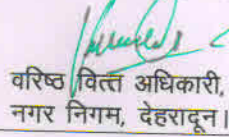 वरिष्ठ वित्त अधिकारी,
नगर निगम, देहरादून।